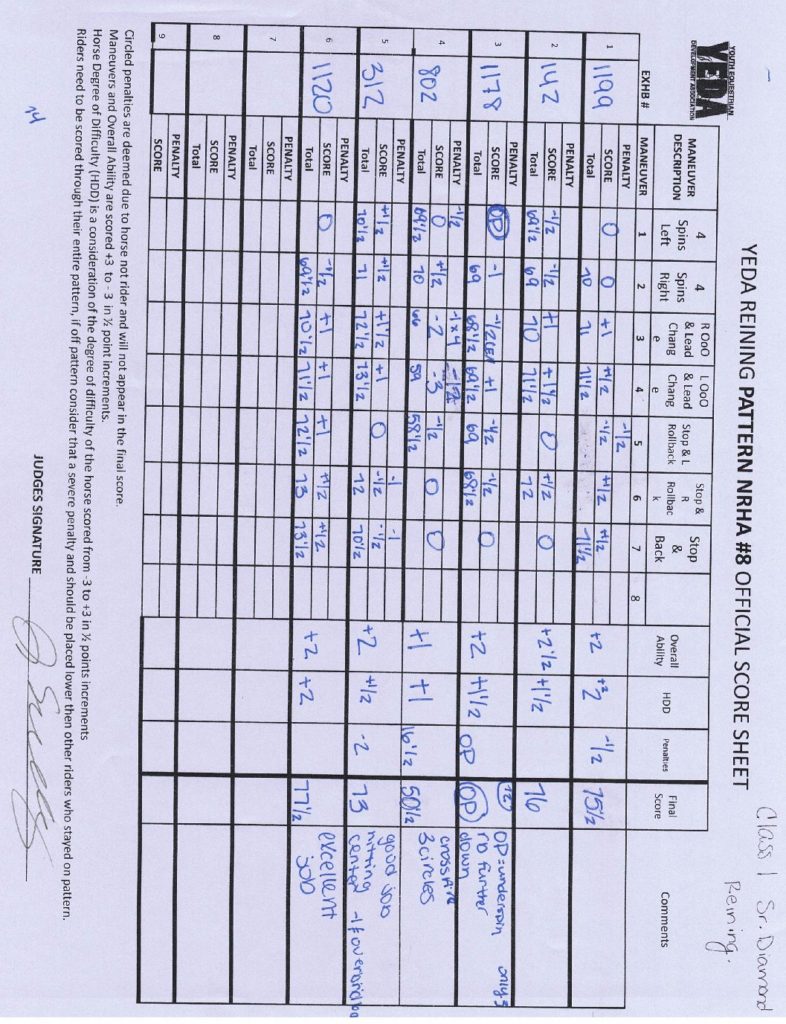 Class 1 Sr. Diamond
Reining.
YOUTH EQUESTRIAN
YEDA
DEVELOPMENT ASSOCIATION
YEDA REINING PATTERN NRHA #8 OFFICIAL SCORE SHEET
MANEUVER DESCRIPTION 4 Spins Left 4 Spins Right R OoO & Lead Chang e L OoO & Lead Chang e Stop & L Rollback Stop & R Rollbac k Stop & Back Overall Ability HDD Penalties Final Score Comments
EXHB # MANEUVER 1 2 3 4 5 6 7 8
1 1199 PENALTY -1/2
SCORE 0 0 +1 +1/2 -1/2 +1/2 +1/2 +2 +2 -1/2 75 1/2
Total 70 71 71 1/2 71 1/2
2 142 PENALTY
SCORE -1/2 -1/2 +1 +1 1/2 0 +1/2 0 +2 1/2 +1 1/2 76
Total 69 1/2 69 70 71 1/2 72
3 1178 PENALTY
SCORE OP -1 -1/2 +1 -1/2 -1/2 0 +2 +1 1/2 OP OP
Total 69 68 1/2 69 1/2 69 68 1/2
OP = underspin only 3
no further down
4 802 PENALTY -1/2 -1x4
SCORE 0 +1/2 -2 -3 -1/2 0 0 +1 +1 16 1/2 50 1/2
Total 69 1/2 70 66 59 58 1/2
crossfire
3 circles
5 312 PENALTY -1 -1
SCORE +1/2 +1/2 +1 1/2 +1 0 -1/2 -1/2 +2 +1/2 -2 73
Total 70 1/2 71 72 1/2 73 1/2 72 70 1/2
good job
hitting
center
6 1120 PENALTY
SCORE 0 -1/2 +1 +1 +1 +1/2 +1/2 +2 +2 77 1/2
Total 69 1/2 70 1/2 71 1/2 72 1/2 73 73 1/2
excellent
job
7 PENALTY
SCORE
Total
8 PENALTY
SCORE
Total
9 PENALTY
SCORE
Circled penalties are deemed due to horse not rider and will not appear in the final score.
Maneuvers and Overall Ability are scored +3 to - 3 in ½ point increments.
Horse Degree of Difficulty (HDD) is a consideration of the degree of difficulty of the horse scored from -3 to +3 in ½ points increments
Riders need to be scored through their entire pattern, if off pattern consider that a severe penalty and should be placed lower then other riders who stayed on pattern.
JUDGES SIGNATURE